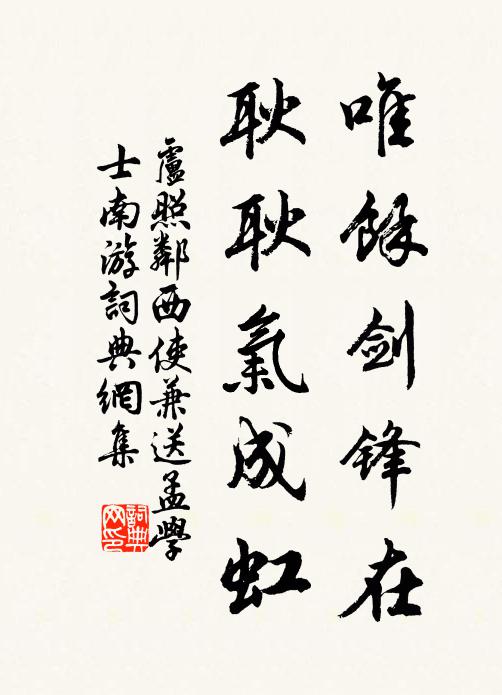 唯餘劍鋒在
耿耿氣成虹
盧照鄰西使兼送孟學
士南游詞典網集
詞典网印